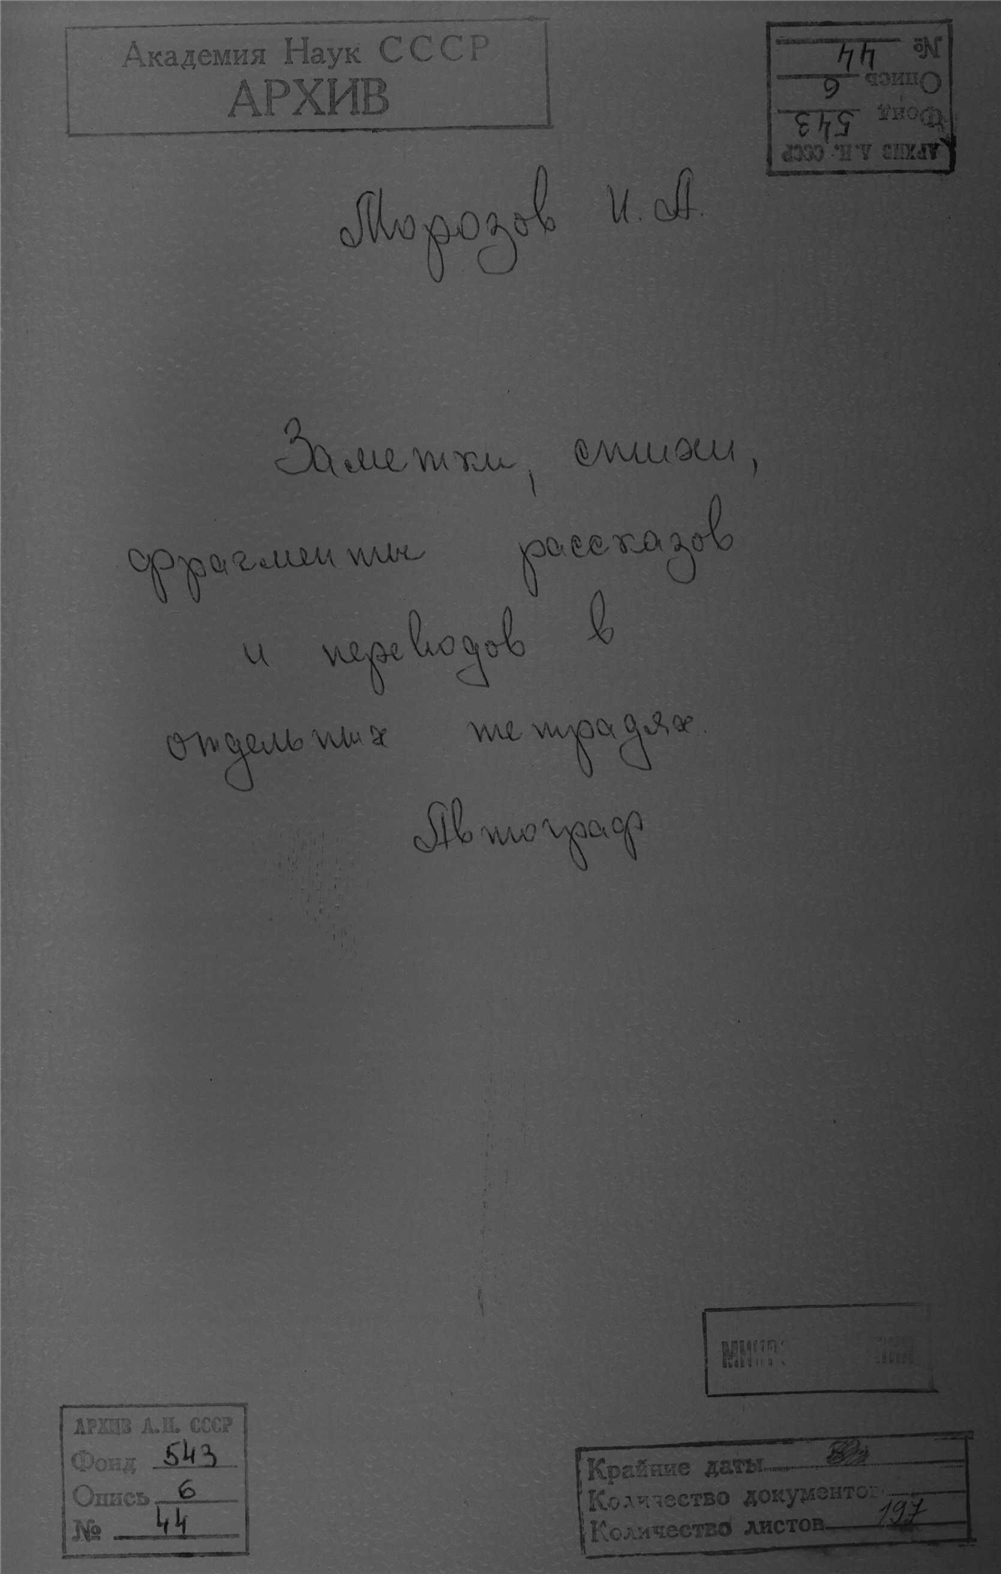 Академия Наук СССР
АРХИВ
№ 44
Опись 6
Фонд 543
АРХИВ А.Н. СССР
Морозов Н. А.
Заметки, стихи,
фрагменты рассказов
и переводов в
отдельных тетрадях.
Автограф
АРХИВ А.Н. СССР
Фонд 543
Опись 6
№ 44
Крайние даты
Количество документов
Количество листов 197